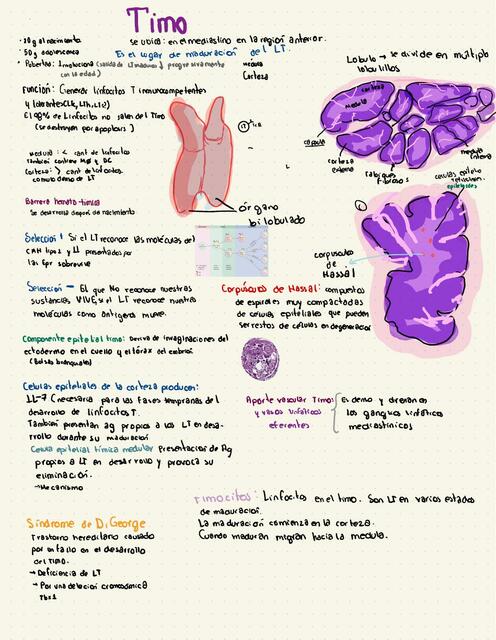 Timo
· 20g al nacimiento
· 50g adolescencia
se ubica: en el mediastino en la región anterior.
Es el lugar de maduración del LT.
Medula
Corteza
Lobulo → se divide en múltiplo
lobulillos
Función: Generar linfocitos T inmunocompetentes
El 98% de linfocitos no salen del Timo
(se destruyen por apoptosis)
Medula: < cant de linfocitos
También contiene MØ y DC
Corteza: > cant de linfocitos.
Barrera hemato timica
Se desarrolla después de nacimiento
órgano
bilobulado
corteza
Medula
capsula
corteza
externa
Tabiques
Fibrosos
medula
externa
celulas epitelio
reticulares
corpusculo
de
Hassal
Selección + Si el LT reconoce las moléculas del
CMH tipo 1 y 2 presentados por
las Epr sobrevive
Selección - El que No reconoce nuestras
sustancias VIVE, si el LT reconoce nuestra
moléculas como antígeno muere.
Corpúsculos de Hassal: compuestos
de espirales muy compactadas
de células epiteliales que pueden
ser restos de células en degeneración
Componente epitelial timo: Deriva de imaginaciones del
ectodermo en el cuello y el tórax del embrión
(Bolsas branquiales)
Celulas epiteliales de la corteza producen:
IL-7 (necesaria para las fases tempranas del
desarrollo de linfocitos T.
También presentan ag propios a los LT en desa-
rrollo durante su maduración
Celula epitelial timica medular Presentación de Ag
propios a LT en desarrollo y provoca su
eliminación.
→ Mecanismo
Aporte vascular Timo:
y vasos linfáticos
eferentes
Es demo y drenan en
los ganglios linfáticos
mediastinicos
Timocitos: Linfocitos en el timo. Son LT en varios estados
de maduración.
La maduración comienza en la corteza.
Cuando maduran migran hacia la medula.
Síndrome de DiGeorge
Trastorno hereditario causado
por un fallo en el desarrollo
del TIMO.
→ Deficiencia de LT
→ Por una deleción cromosómica
Tbx1